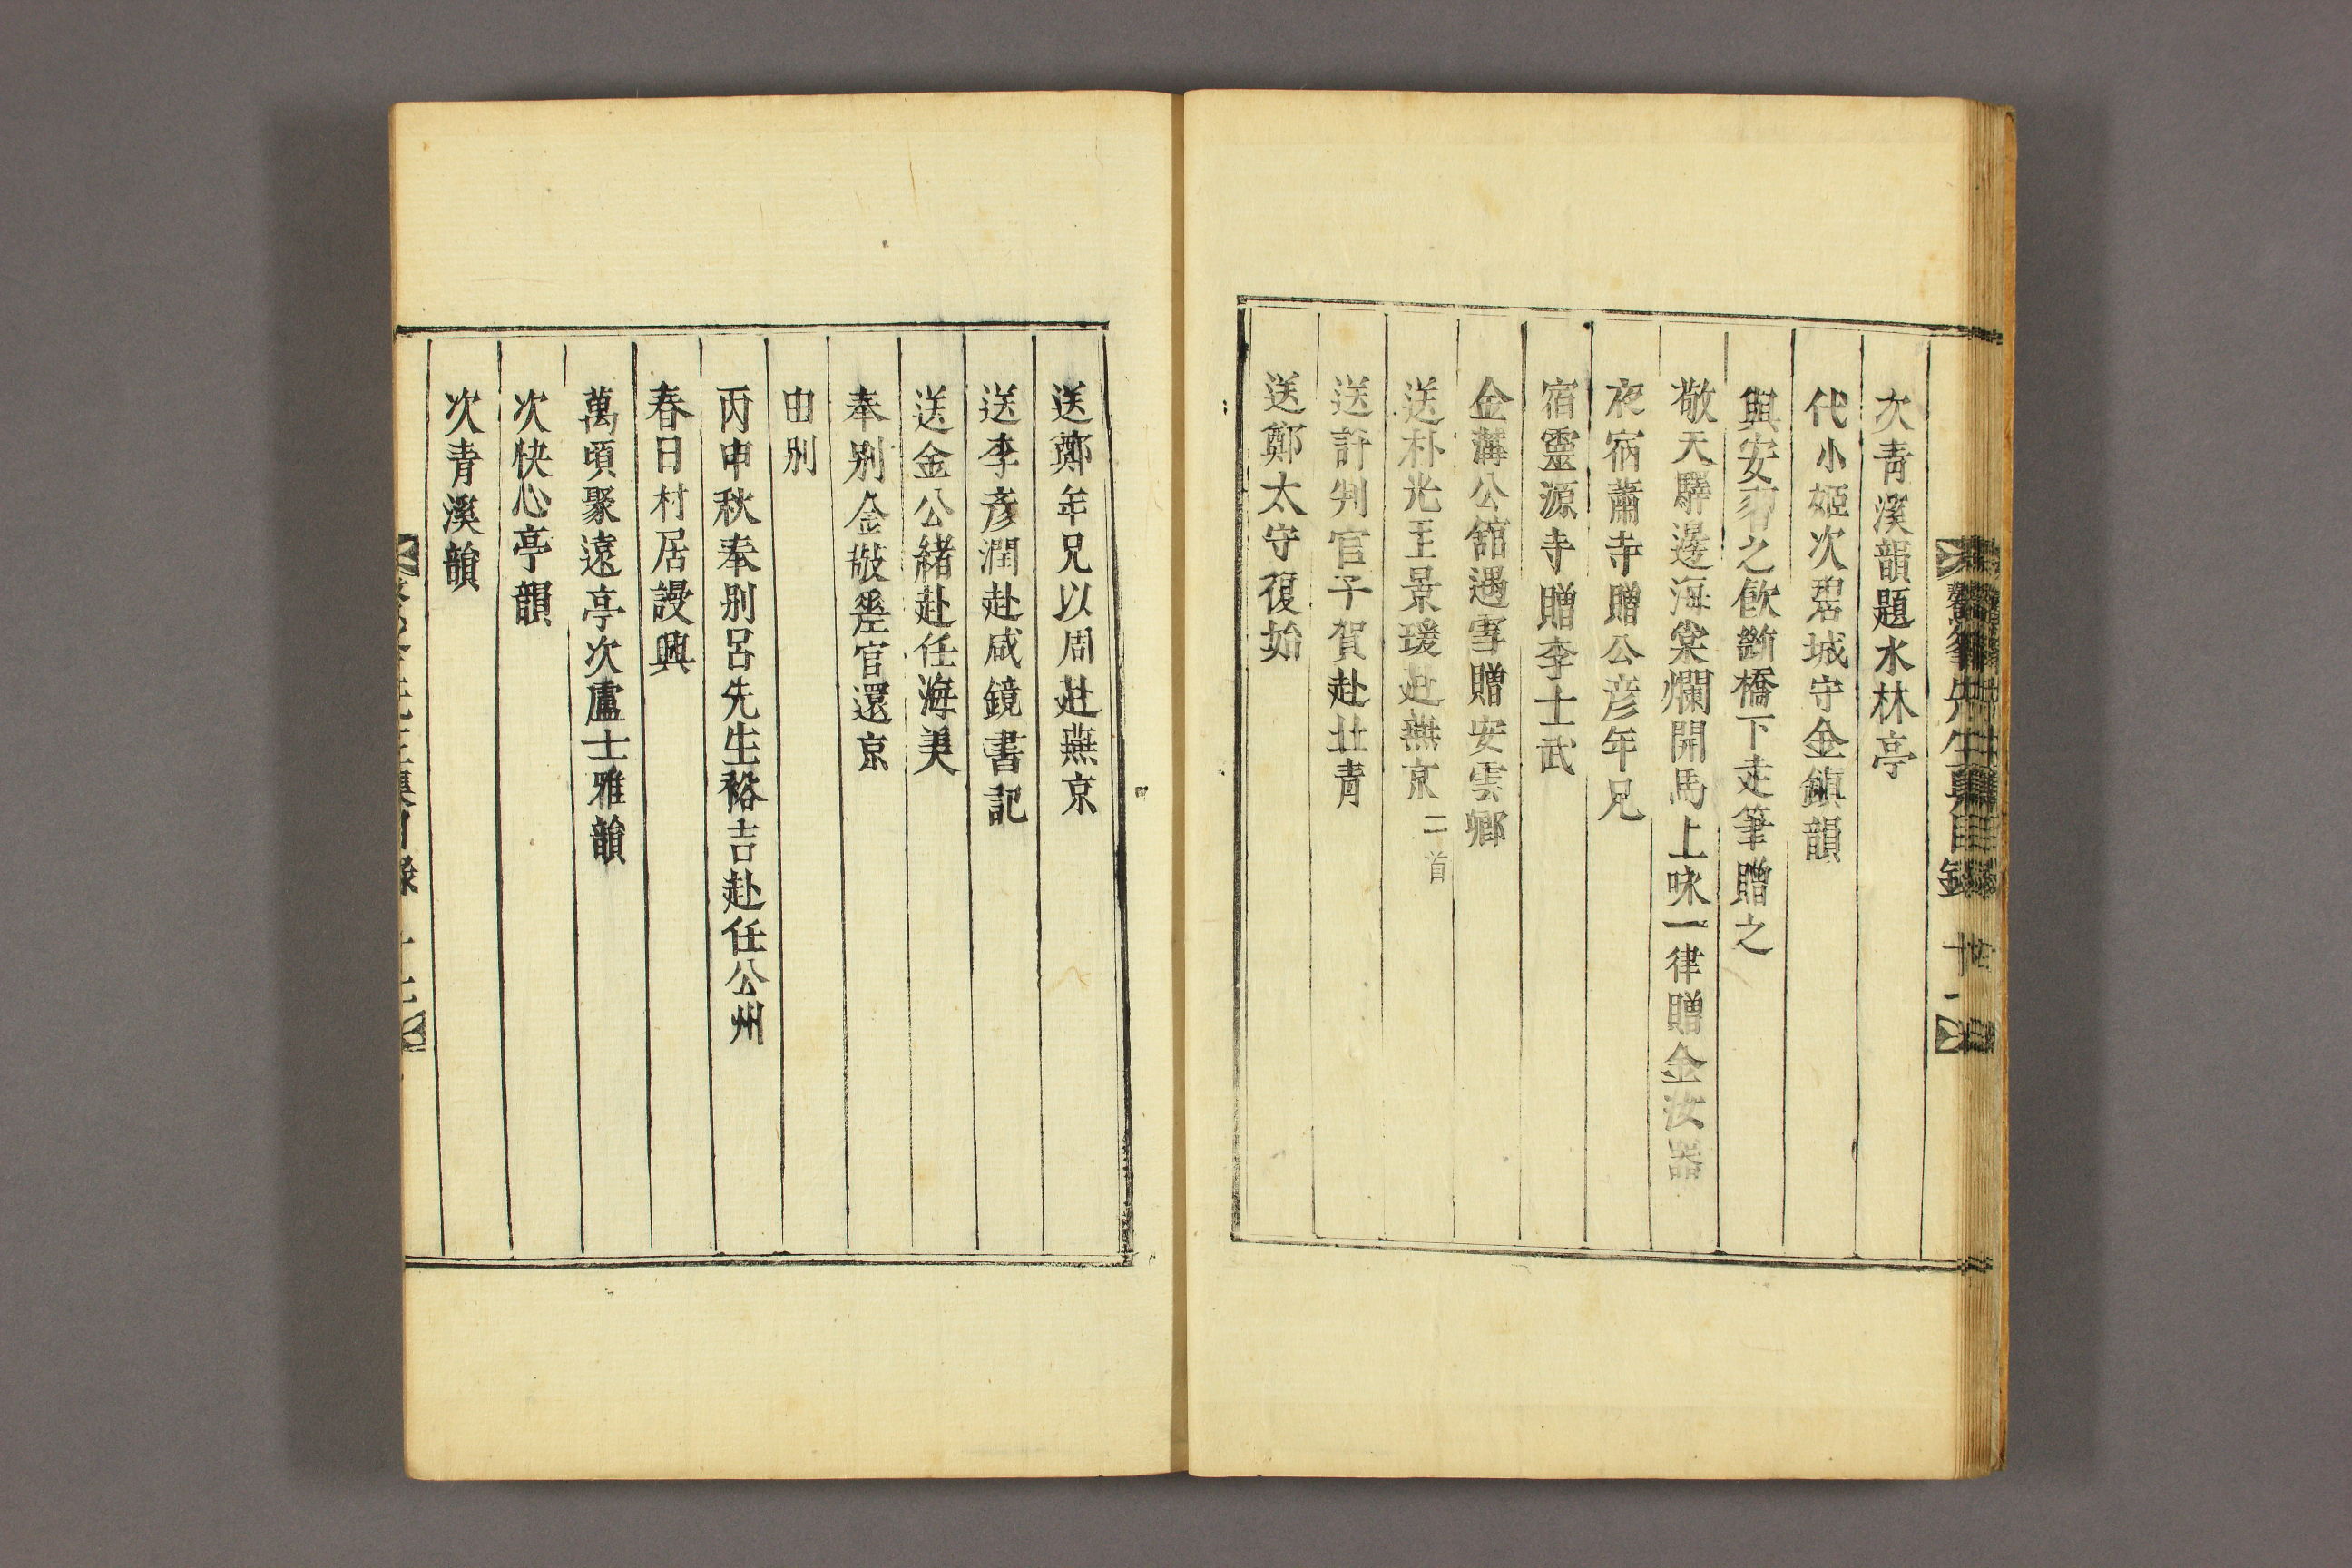 次青溪韻題水林亭
代小姬次碧城守金鎭韻
與安君之飮斷橋下走筆贈之
敬天驛邊海棠爛開馬上咏一律贈金汝器
夜宿蕭寺贈公彦年兄
宿靈源寺贈李士武
金溝公館遇雪贈安雲卿
送朴光王景瑗赴燕京二首
送許判官子賀赴北靑
送鄭太守復始
送鄭年兄以周赴燕京
送李彦潤赴咸鏡書記
送金公緒赴任海美
奉別金敬差官還京
由別
丙申秋奉別呂先生裕吉赴任公州
春日村居謾興
萬頃聚遠亭次盧士雅韻
次快心亭韻
次青溪韻